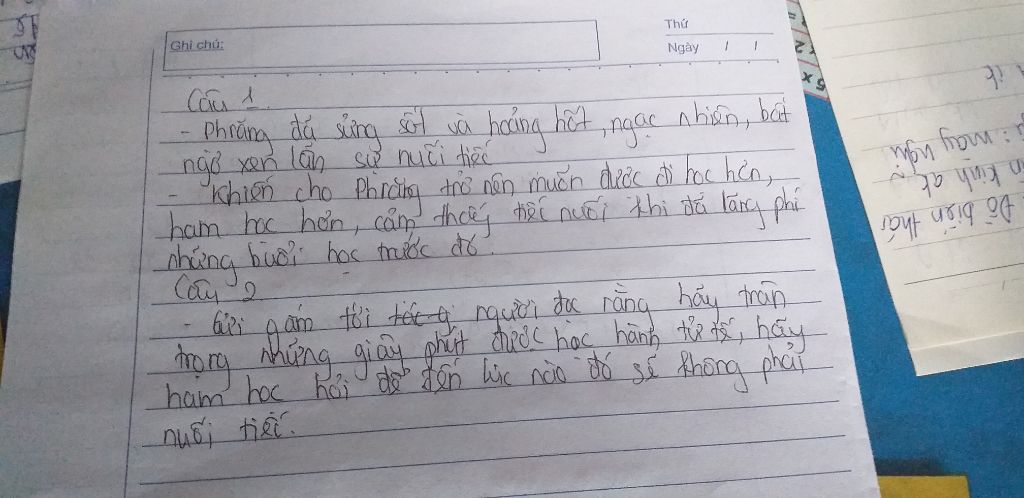 Ghi chú:
Thứ
Ngày / /
Câu 1.
- Phrăng đã sửng sốt và hoảng hốt, ngạc nhiên, bất
ngờ xen lẫn sự nuối tiếc
- Khiến cho Phrăng trở nên muốn được đi học hơn,
ham học hơn, cảm thấy tiếc nuối khi đã lãng phí
những buổi học trước đó.
Câu 2
- Gửi gắm tới người đọc rằng hãy trân
trọng những giây phút được học hành tử tế, hãy
ham học hỏi để đến lúc nào đó sẽ không phải
nuối tiếc.
Đô biên thái
n kinh at
: may nghi
it